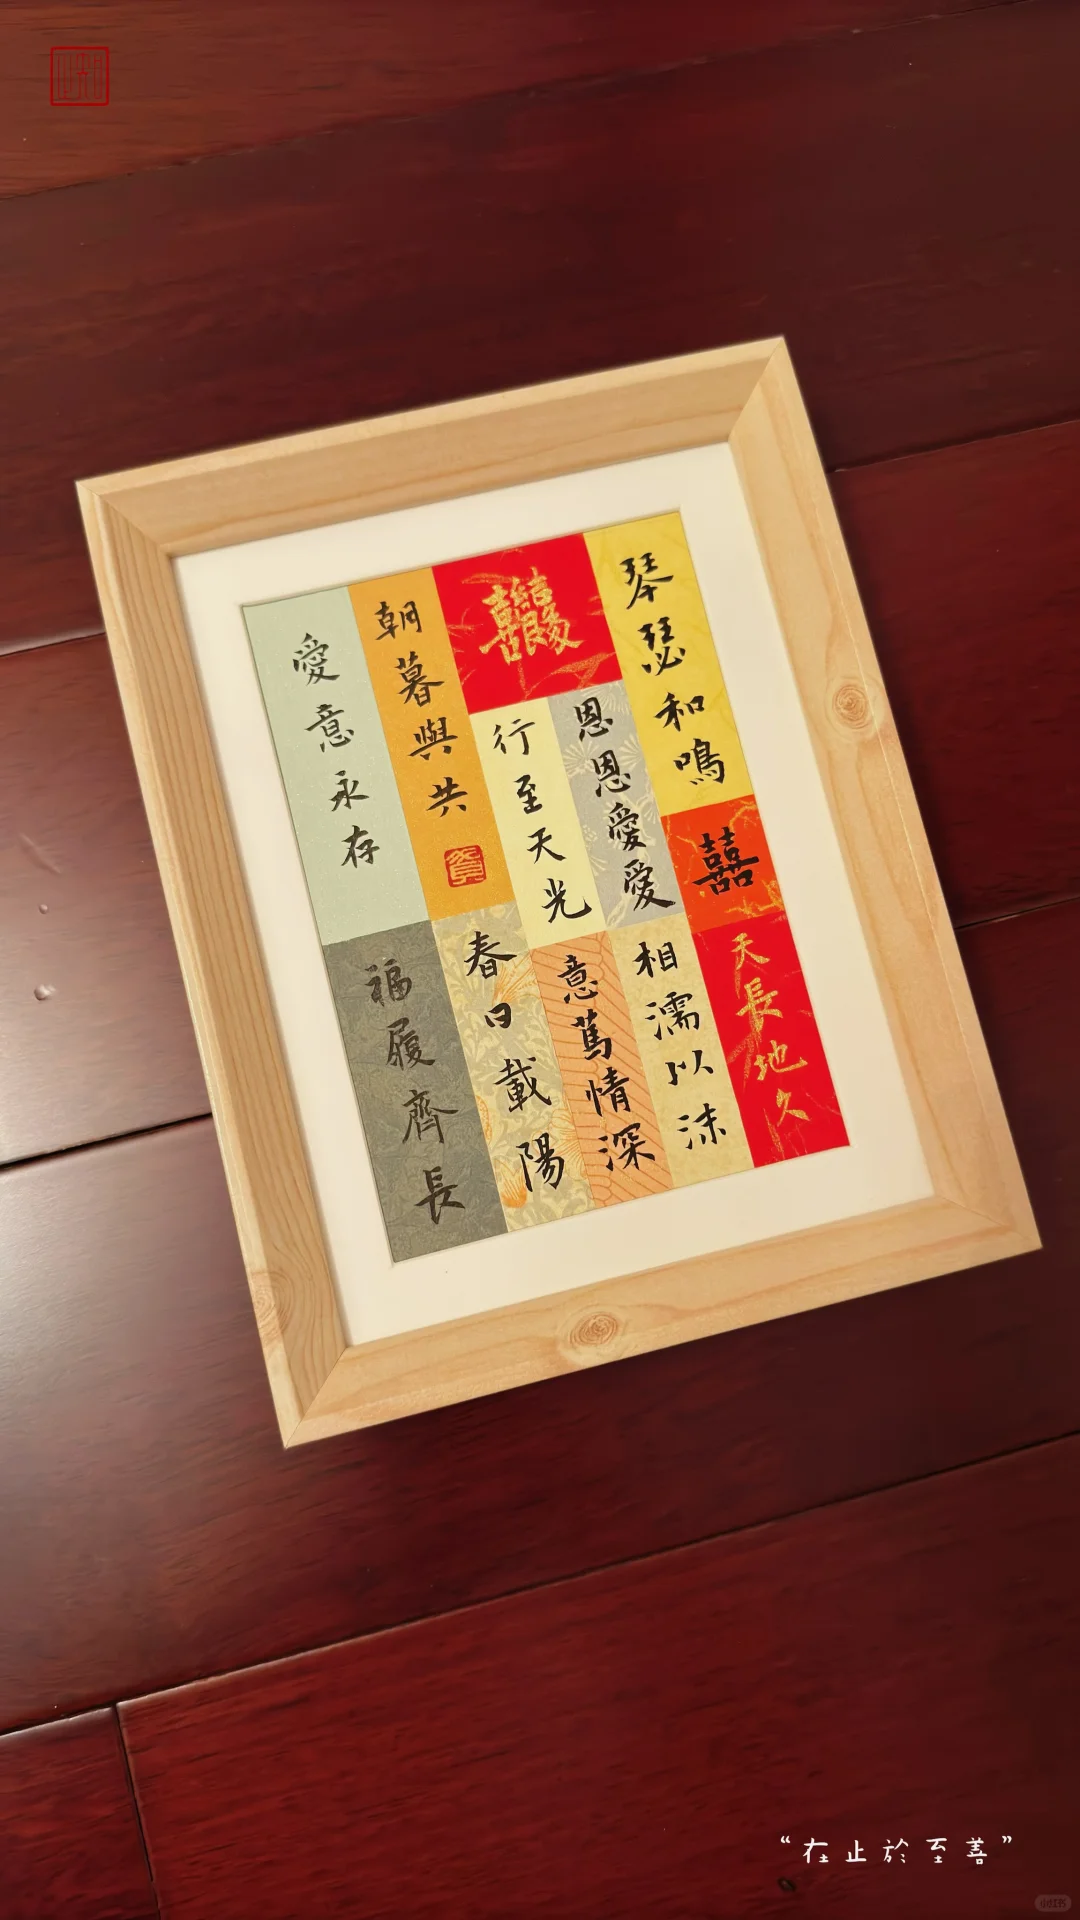 琴瑟和鳴
囍
天長地久
恩恩愛愛
相濡以沫
行至天光
意篤情深
朝暮與共
春日載陽
愛意永存
福履齊長
“在止於至善”